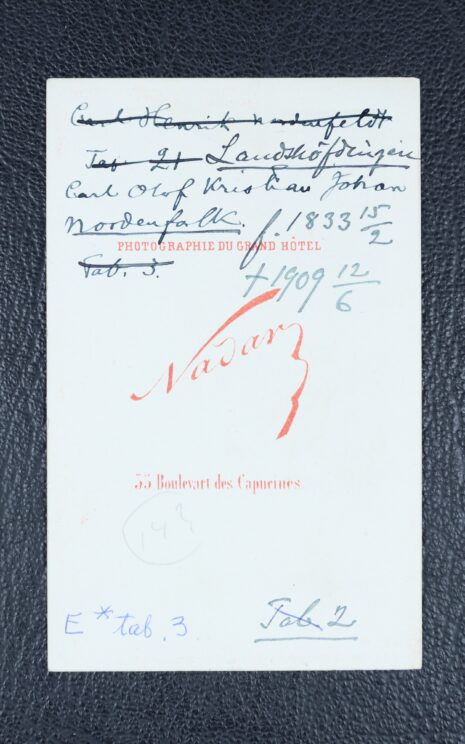 Carl Henrik Nordenfeldt
Tab. 21 Landshöfdingen
Carl Olof Kristian Johan
Nordenfalk. f. 1833 15/2
PHOTOGRAPHIE DU GRAND HÔTEL
Tab. 3. † 1909 12/6
Nadar
35 Boulevart des Capucines
E * tab. 3
Tab. 2